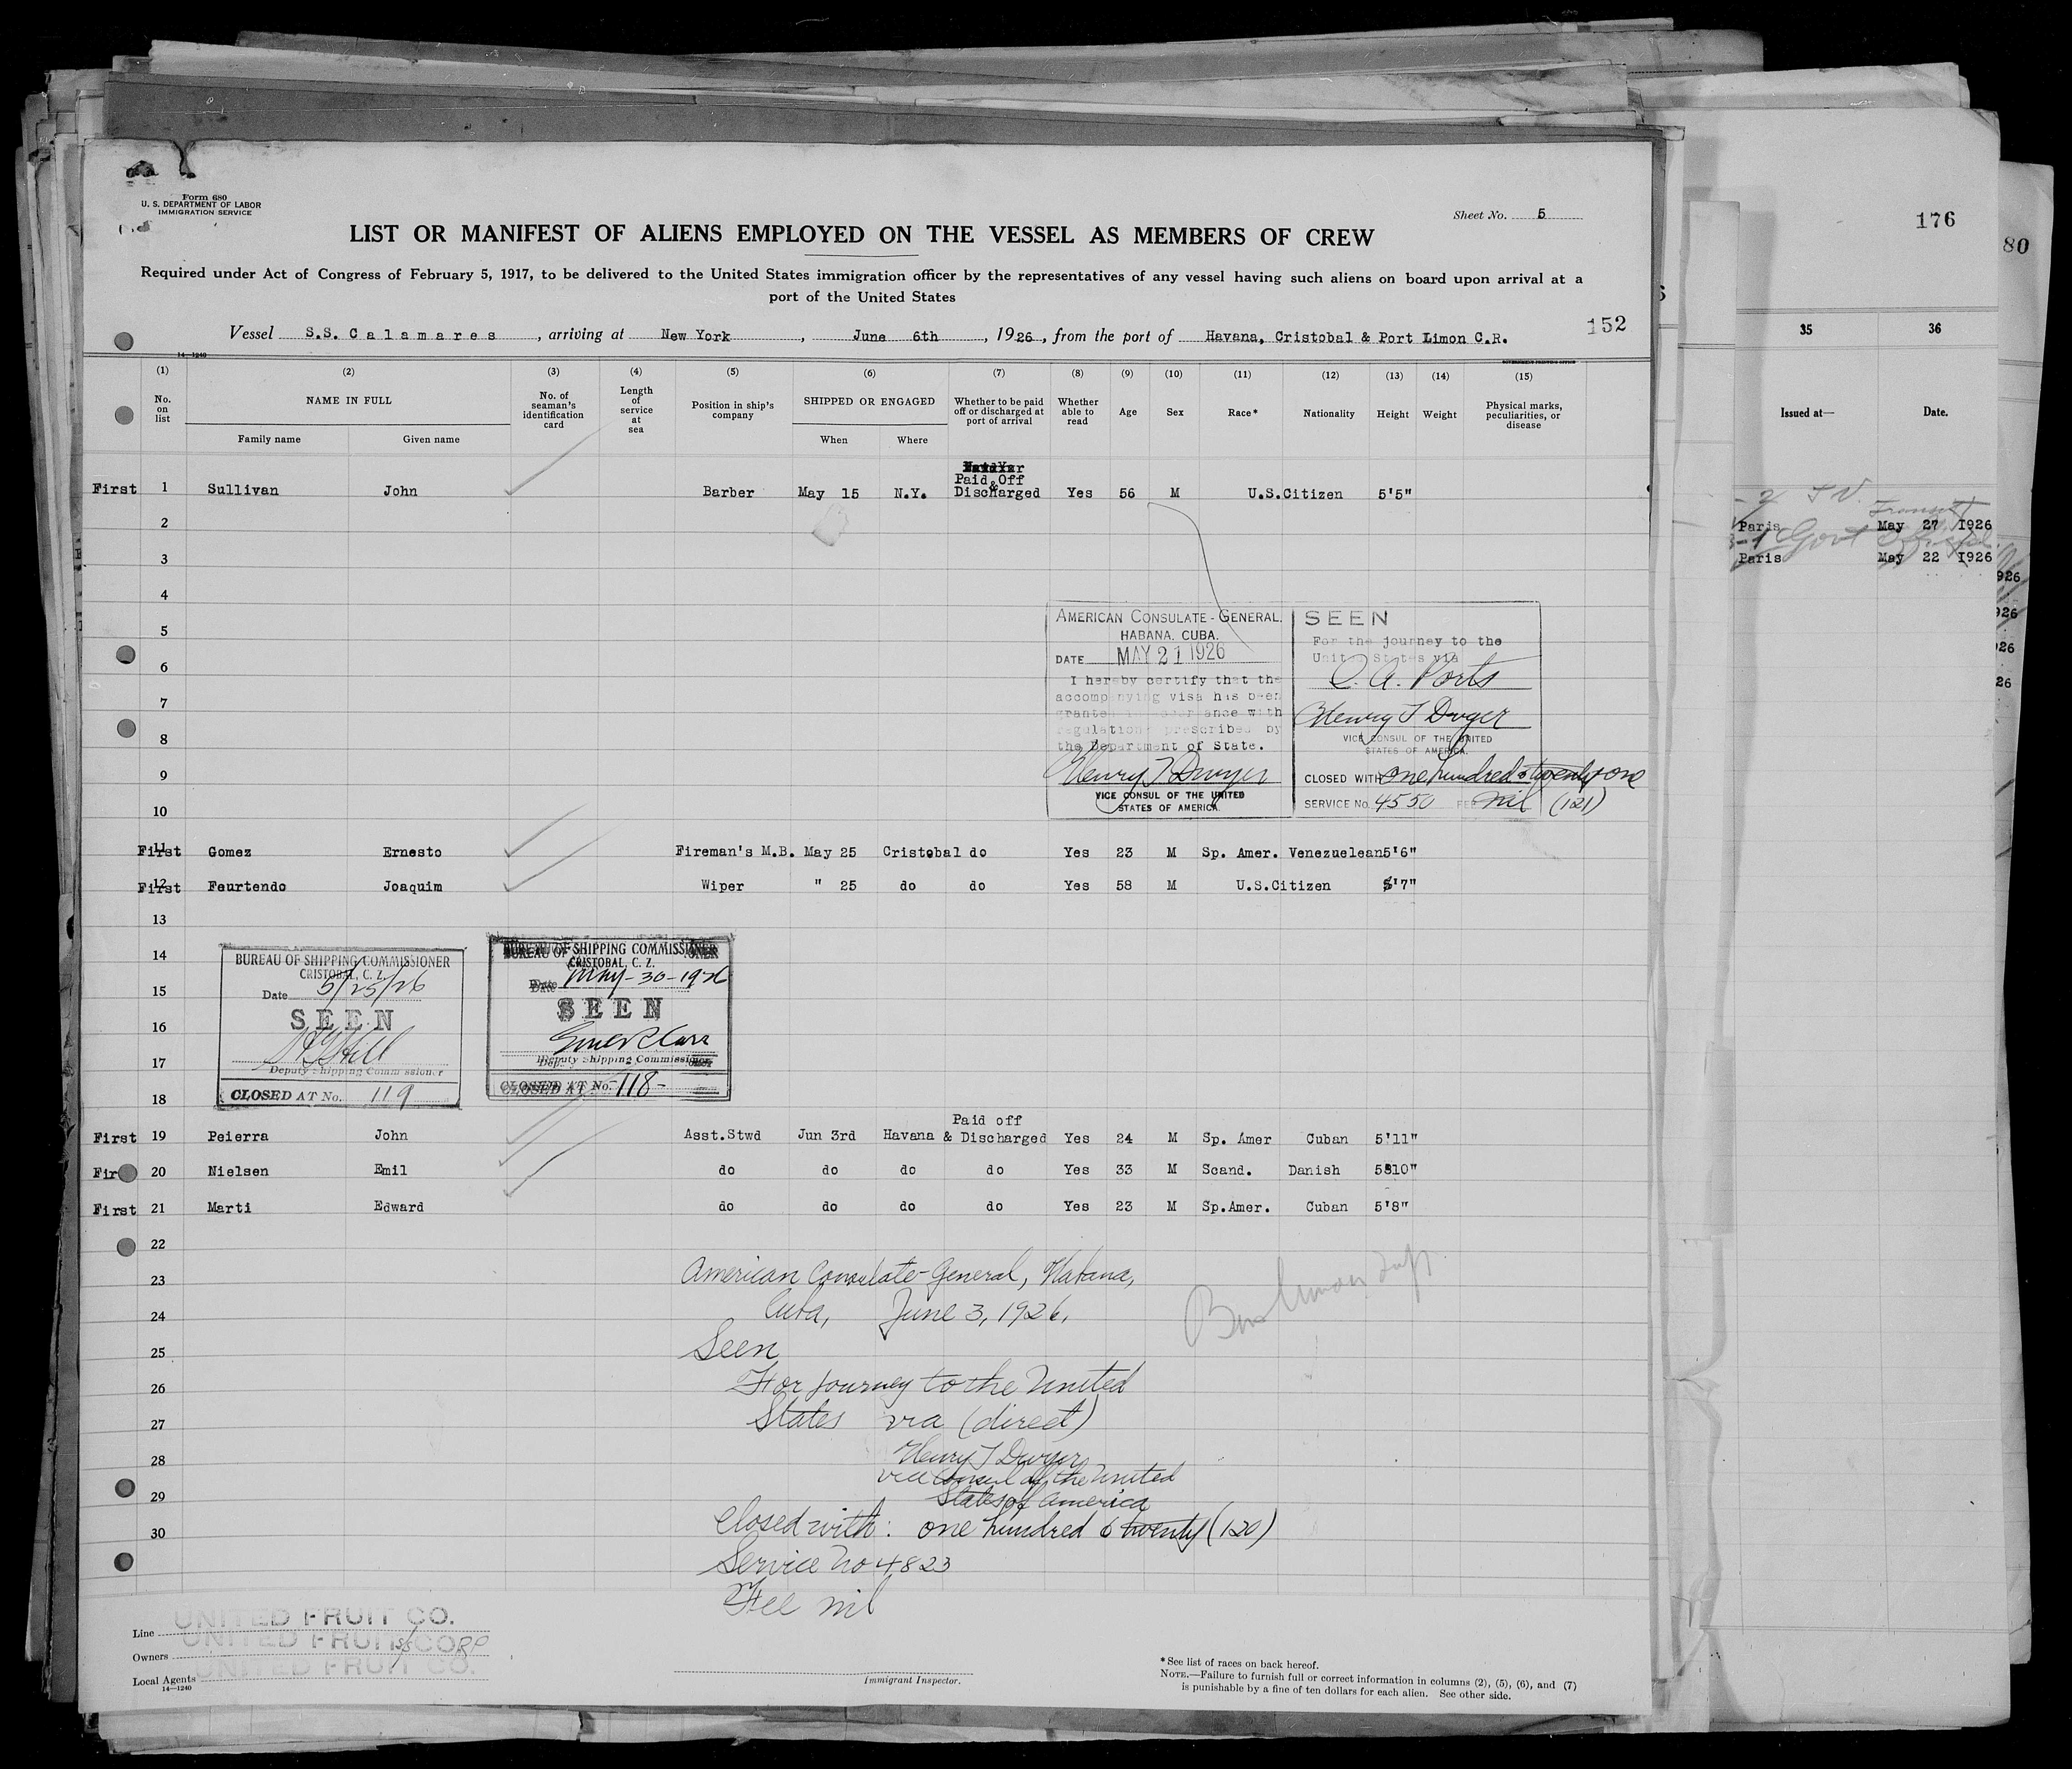 Form 680
U. S. DEPARTMENT OF LABOR
IMMIGRATION SERVICE
Sheet No. 5
LIST OR MANIFEST OF ALIENS EMPLOYED ON THE VESSEL AS MEMBERS OF CREW
Required under Act of Congress of February 5, 1917, to be delivered to the United States immigration officer by the representatives of any vessel having such aliens on board upon arrival at a
port of the United States
Vessel S.S. Calamares, arriving at New York, June 6th, 1926, from the port of Havana, Cristobal & Port Limon C.R.
152
14-1240
GOVERNMENT PRINTING OFFICE
(1) (2) (3) (4) (5) (6) (7) (8) (9) (10) (11) (12) (13) (14) (15)
No. on list
NAME IN FULL
Family name Given name
No. of seaman's identification card
Length of service at sea
Position in ship's company
SHIPPED OR ENGAGED
When Where
Whether to be paid off or discharged at port of arrival
Whether able to read
Age Sex Race* Nationality Height Weight
Physical marks, peculiarities, or disease
First 1 Sullivan John Barber May 15 N.Y. Paid Off & Discharged Yes 56 M U.S.Citizen 5'5"
2
3
4
5
6
7
8
9
10
AMERICAN CONSULATE-GENERAL.
HABANA. CUBA.
DATE MAY 21 1926
I hereby certify that the
accompanying visa has been
granted in accordance with
regulations prescribed by
the Department of State.
Henry T Dwyer
VICE CONSUL OF THE UNITED
STATES OF AMERICA.
SEEN
For the journey to the
United States via
C. A. Ports
Henry T Dwyer
VICE CONSUL OF THE UNITED
STATES OF AMERICA.
CLOSED WITH one hundred & twenty one
SERVICE No. 4550 FEE nil (121)
First 11 Gomez Ernesto Fireman's M.B. May 25 Cristobal do Yes 23 M Sp. Amer. Venezuelean 5'6"
First 12 Feurtendo Joaquim Wiper " 25 do do Yes 58 M U.S.Citizen 5'7"
13
14
15
16
17
18
BUREAU OF SHIPPING COMMISSIONER
CRISTOBAL, C. Z.
Date 5/25/26
SEEN
Hill
Deputy Shipping Commissioner
CLOSED AT No. 119
BUREAU OF SHIPPING COMMISSIONER
CRISTOBAL, C. Z.
Date May-30-1926
SEEN
Deputy Shipping Commissioner
CLOSED AT No. -118-
First 19 Peierra John Asst.Stwd Jun 3rd Havana Paid off & Discharged Yes 24 M Sp. Amer Cuban 5'11"
First 20 Nielsen Emil do do do do Yes 33 M Scand. Danish 5'10"
First 21 Marti Edward do do do do Yes 23 M Sp.Amer. Cuban 5'8"
22
23
24
25
26
27
28
29
30
American Consulate-General, Habana,
Cuba, June 3, 1926.
Seen
For journey to the United
States via (direct)
Henry T Dwyer
Vice Consul of the United
States of America
Closed with: one hundred & twenty (120)
Service No 4823
Fee nil
Line UNITED FRUIT CO.
Owners UNITED FRUIT S/S CORP
Local Agents UNITED FRUIT CO.
14-1240
Immigrant Inspector.
*See list of races on back hereof.
NOTE.—Failure to furnish full or correct information in columns (2), (5), (6), and (7)
is punishable by a fine of ten dollars for each alien. See other side.
176
80
35 36
Issued at— Date.
Transit
Paris May 27 1926
Govt
Paris May 22 1926
926
926
26
26